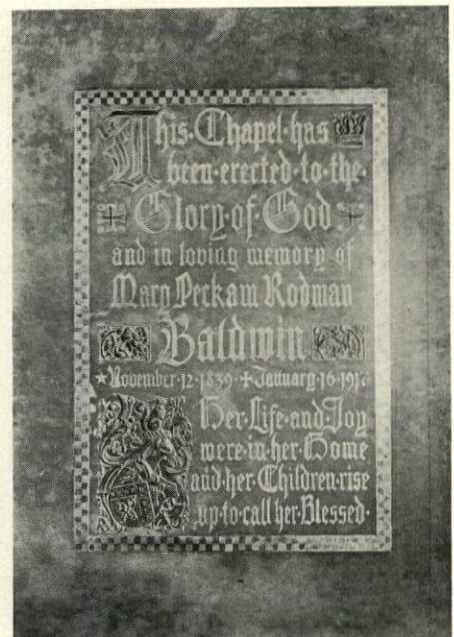 This·Chapel·has
been·erected·to·the·
Glory·of·God
and in loving memory of
Mary Peckam Rodman
Baldwin
★November·12·1839·✝January·16·
Her·Life·and·Joy
were·in·her·Home
and·her·Children·rise
up·to·call·her·Blessed·